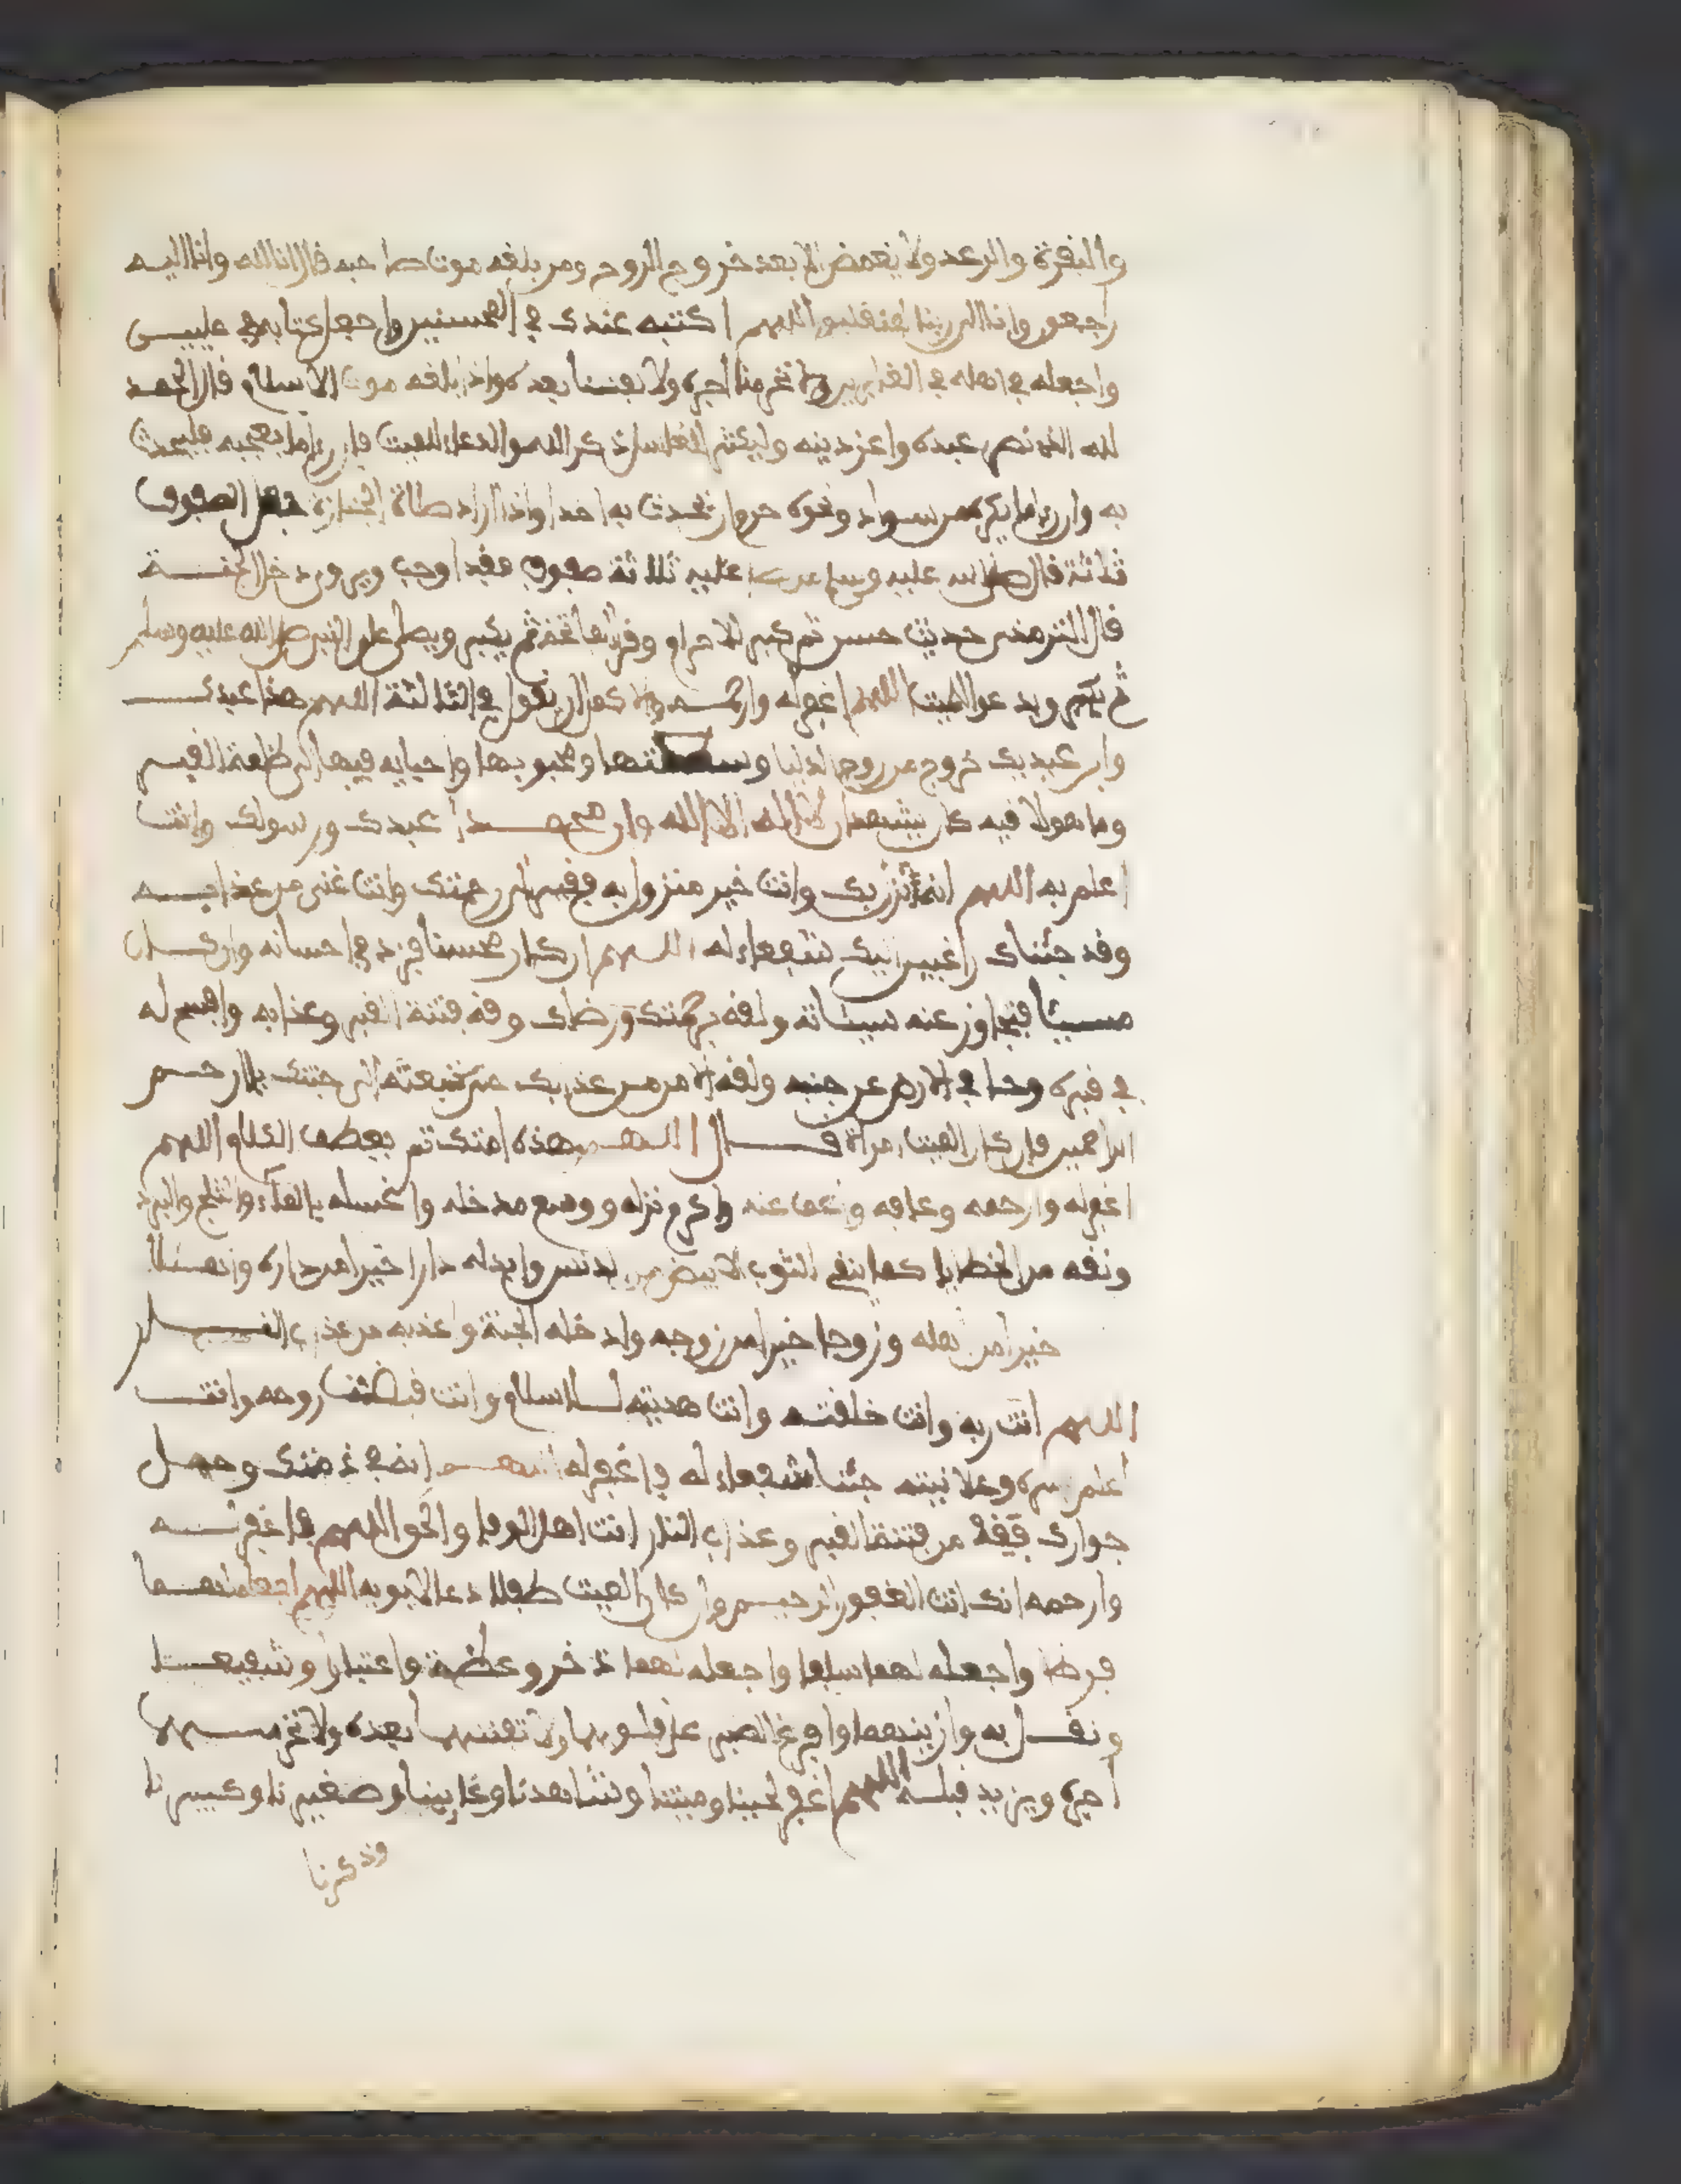 والبقرة والرعد ولا يغمض الا بعد خروج الروح ومن بلغه موت صاحبه قال انا لله وانا اليه
راجعون وانا الى ربنا لمنقلبون اللهم اكتبه عندك في المحسنين واجعل كتابه في عليين
واخلفه في اهله في الغابرين ولا تحرمنا اجره ولا تفتنا بعده واذا بلغه موت الاسلام قال الحمد
لله الذي نصر عبده واعز دينه وليكثر الغاسل ذكر الله والدعاء للميت فان رءا ما يعجبه فليحدث
به وان رءا ما يكره من سواد ونحوه حرم ان يحدث به احدا واذا اراد صلاة الجنازة جعل الصفوف
ثلاثة قال صلى الله عليه وسلم من صلى عليه ثلاثة صفوف فقد اوجب ويروى دخل الجنة
قال الترمذي حديث حسن ثم كبر للاحرام وقرا الفاتحة ثم يكبر ويصلي على النبي صلى الله عليه وسلم
ثم يكبر ويدعو للميت اللهم اغفر له وارحمه والاكمل ان يقول في الثالثة اللهم هذا عبدك
وابن عبديك خروج من روح الدنيا وسعتها ومحبوبها واحبايه فيها الى ظلمة القبر
وما هو لاقيه كان يشهد ان لا اله الا الله وان محمدا عبدك ورسولك وانت
اعلم به اللهم انه نزل بك وانت خير منزول به وفقير الى رحمتك وانت غني عن عذابه
وقد جئناك راغبين اليك شفعاء له اللهم ان كان محسنا فزد في احسانه وان كان
مسيئا فتجاوز عنه سيئاته ولقه برحمتك ورضاك وقه فتنة القبر وعذابه وافسح له
في قبره وجا في الارض عن جنبيه ولقه الامن من عذابك حتى تبعثه الى جنتك يا ارحم
الراحمين فان كان الميت امراة قال اللهم هذه امتك ثم يعطف الكلام اللهم
اغفر له وارحمه وعافه واعف عنه واكرم نزله ووسع مدخله واغسله بالماء والثلج والبرد
ونقه من الخطايا كما ينقى الثوب الابيض من الدنس وابدله دارا خيرا من داره واهلا
خيرا من اهله وزوجا خيرا من زوجه وادخله الجنة واعذبه من عذاب القبر
اللهم انت ربه وانت خلقته وانت هديته للاسلام وانت قبضت روحه وانت
اعلم بسره وعلانيته جئنا شفعاء له فاغفر له اللهم انه في ذمتك وحبل
جوارك فقه من فتنة القبر وعذاب النار انت اهل الوفا والحق اللهم فاغفر له
وارحمه انك انت الغفور الرحيم وان كان الميت طفلا دعا لابويه اللهم اجعله لهما
فرطا واجعله لهما سلفا واجعله لهما ذخر وعظة واعتبارا وشفيعا
وثقل به موازينهما وافرغ الصبر على قلوبهما ولا تفتنهما بعده ولا تحرمهما
اجره ويزيد قبله اللهم اغفر لحينا وميتنا وشاهدنا وغايبنا وصغيرنا وكبيرنا
وذكرنا